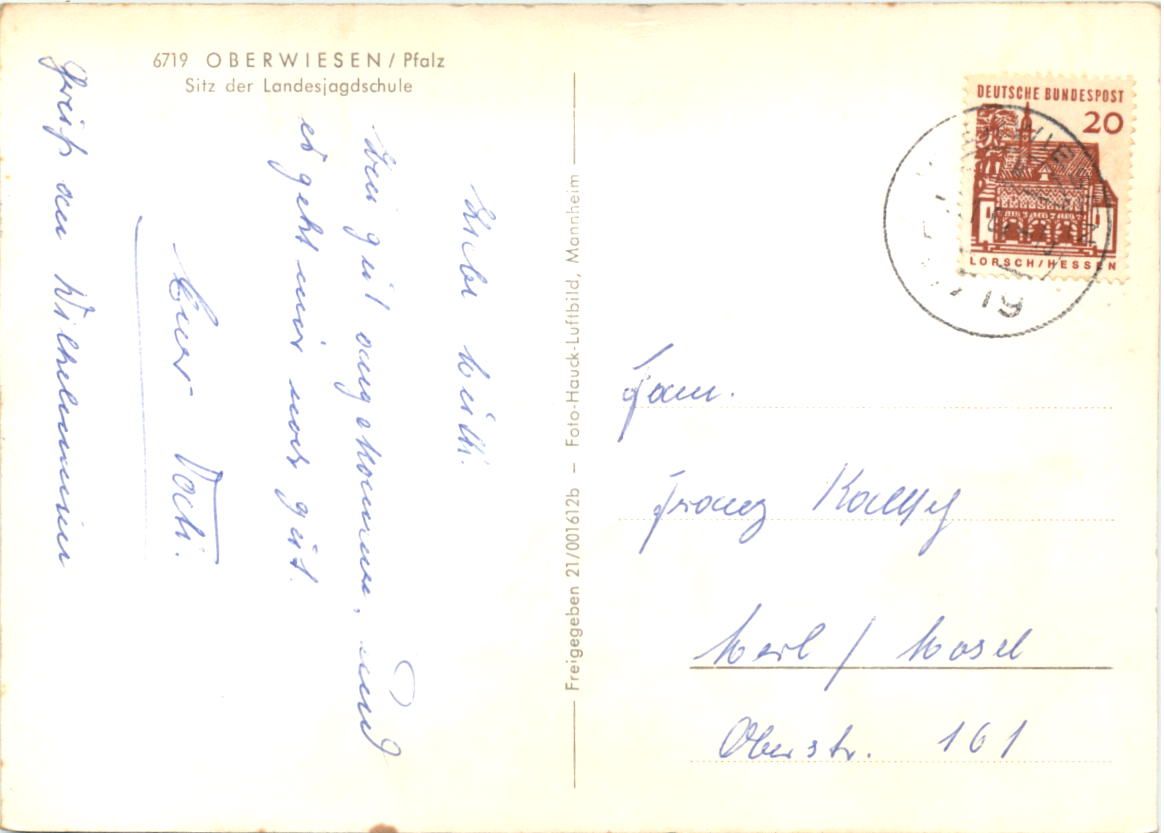 6719 OBERWIESEN / Pfalz
Sitz der Landesjagdschule
Liebe
Bin gut angekommen, und
es geht mir noch gut.
Euer
Gruß an Wilhelmine
Freigegeben 21/001612b – Foto-Hauck-Luftbild, Mannheim
DEUTSCHE BUNDESPOST
20
LORSCH/HESSEN
Fam.
Franz
Merl / Mosel
Oberstr. 161